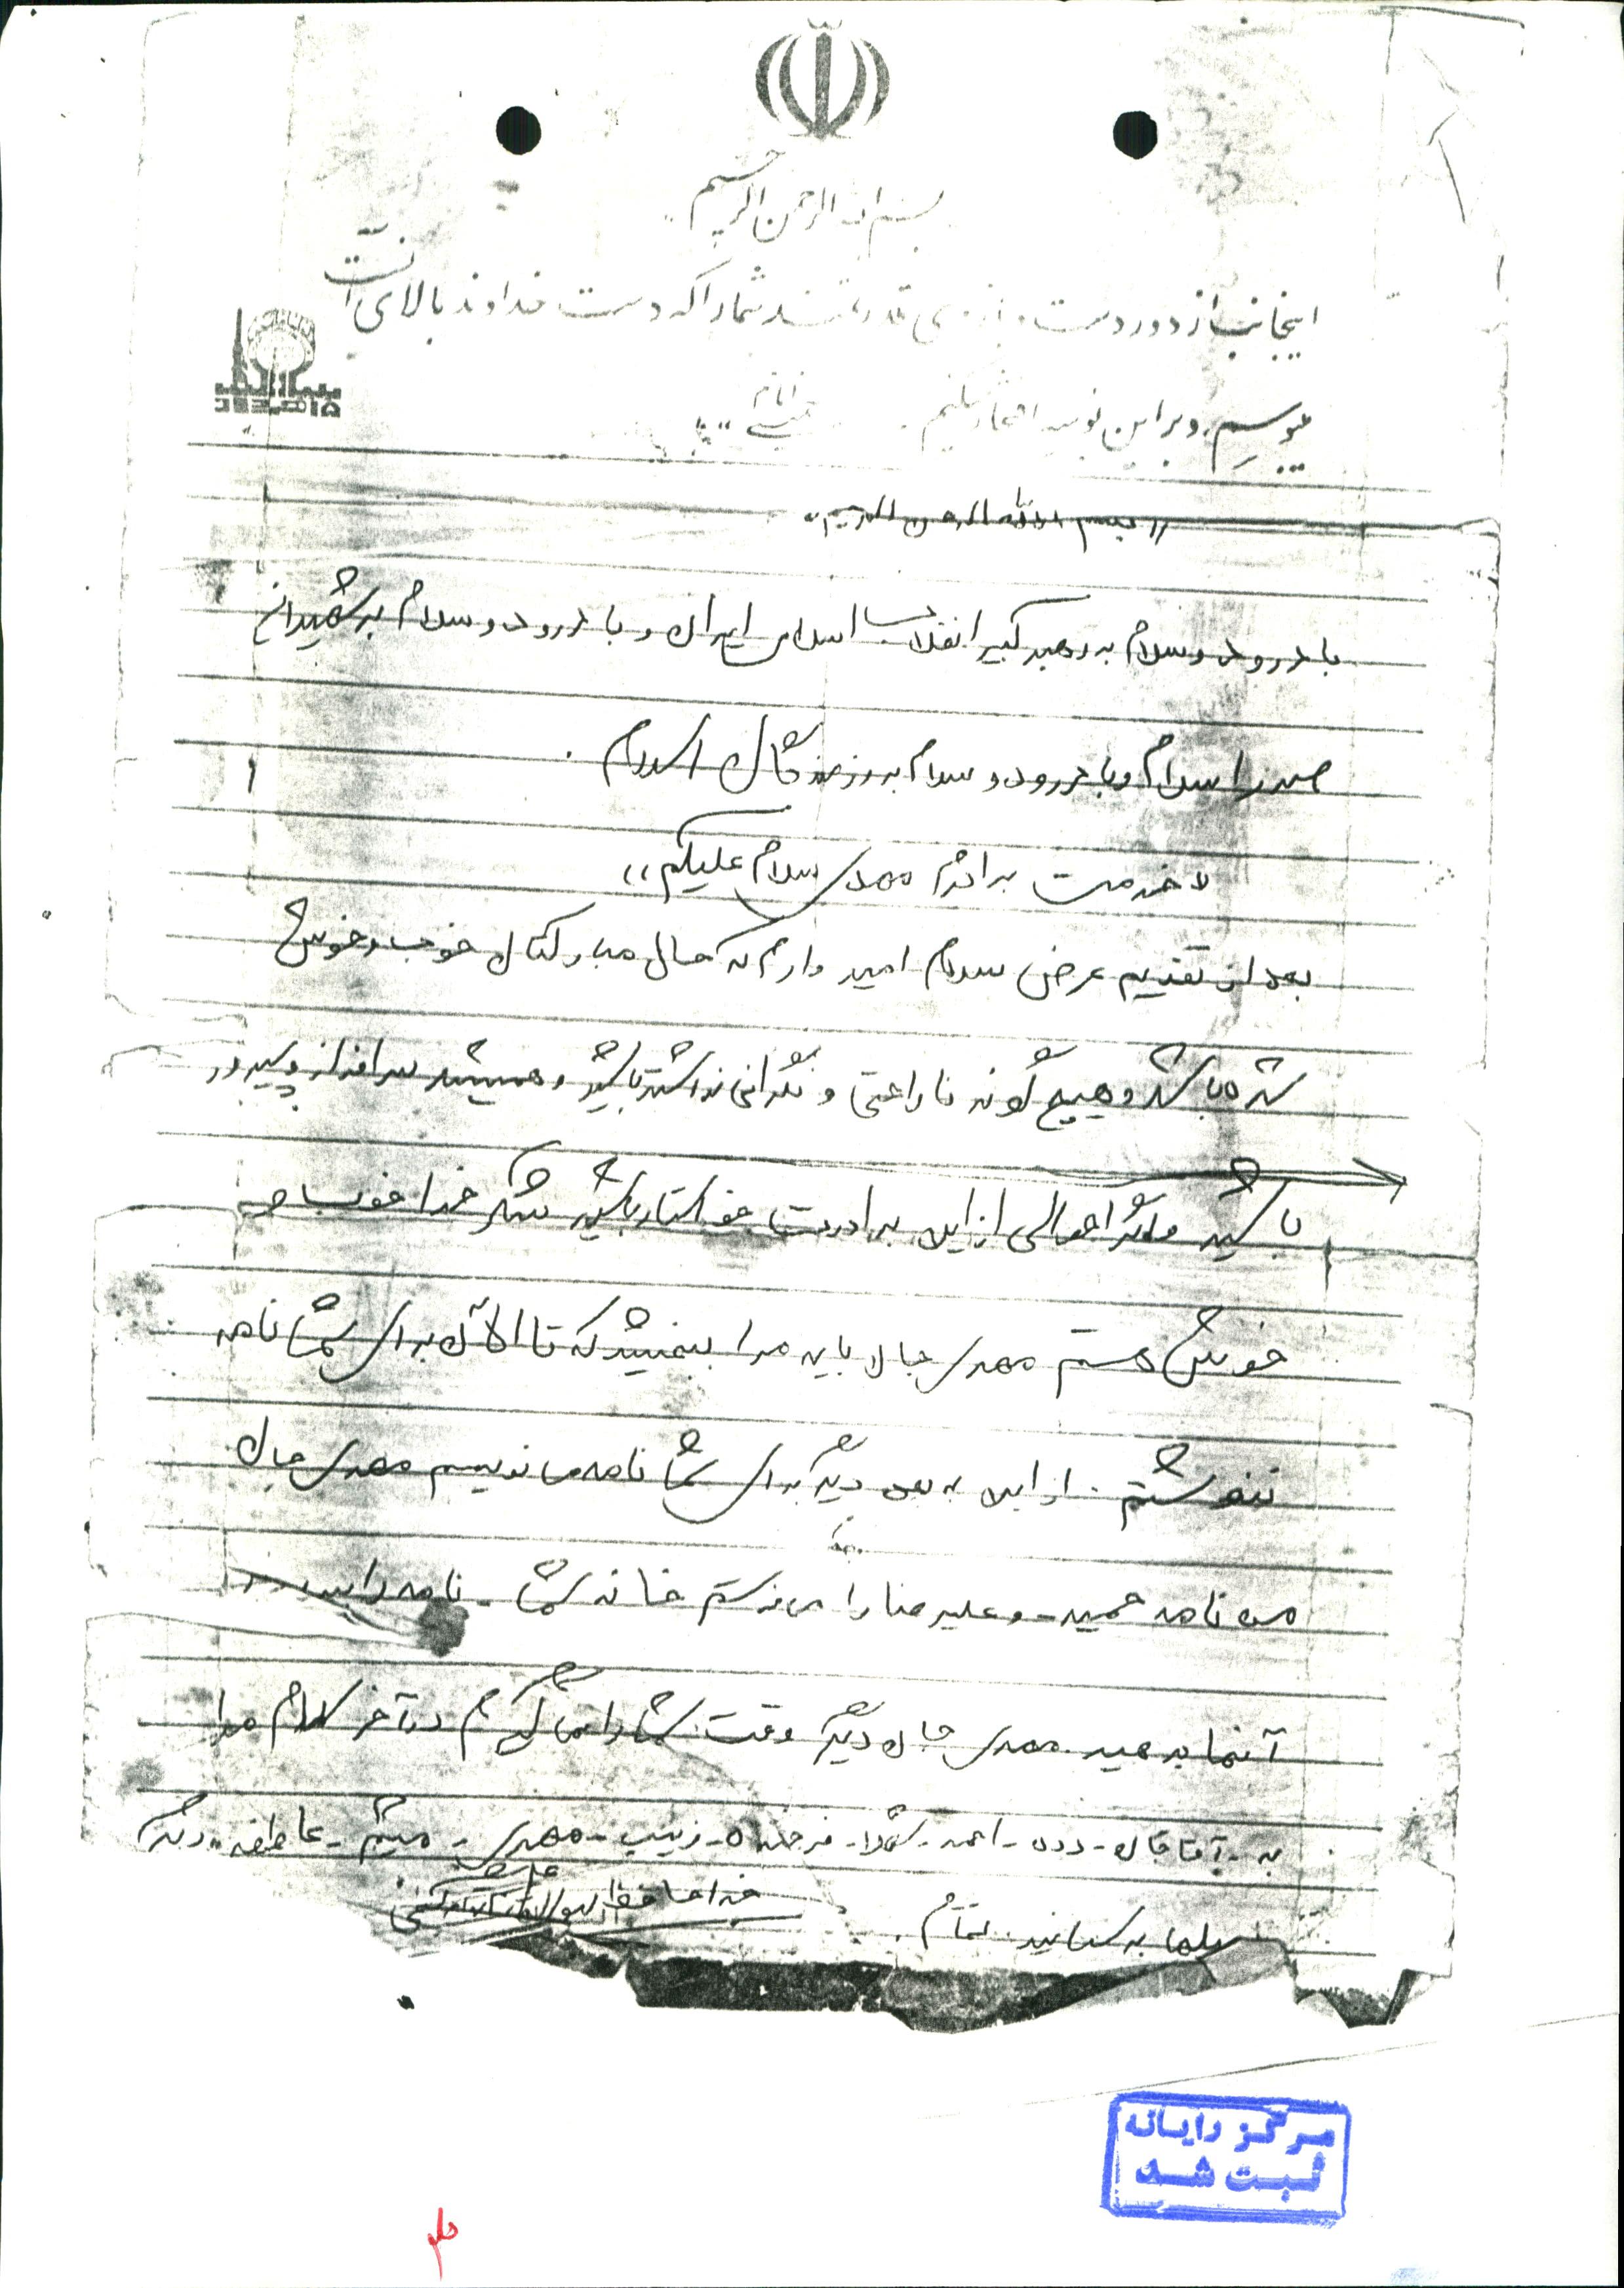 بسم الله الرحمن الرحیم
اینجانب از دور دست و بازوی قدرتمند شما را که دست خداوند بالای آنست
میبوسم و بر این بوسه افتخار میکنم. امام خمینی
بنیاد شهید
«بسم الله الرحمن الرحیم»
با درود و سلام به رهبر کبیر انقلاب اسلامی ایران و با درود و سلام بر شهیدان
صدر اسلام و با درود و سلام به رزمندگان اسلام.
خدمت برادرم مهدی سلام علیکم»
بعد از تقدیم عرض سلام امید وارم که حال مبارکتان خوب و خوش
شده باشد و هیچ گونه ناراحتی و نگرانی نداشته باشید و همیشه سرافراز و پیروز
باشید و اگر احوالی از این برادرت خواستار باشید شکر خدا خوب
خوش هستم مهدی جان باید مرا ببخشید که تا الآن برای شما نامه
ننوشتم. از این به بعد دیگر برای شما نامه می نویسم مهدی جان
من نامه حمید - و علیرضا را می فرستم خانه شما - نامه را
آنها بدهید. مهدی جان دیگر وقت شما را نمی گیرم در آخر سلام مرا
به - آقاجان - ددن - احمد - شهلا - فرخنده - زینب - مهدی - میثم - عاطفه و دیگر
به سانید. تمام. خداحافظ
مرکز رایانه
ثبت شد